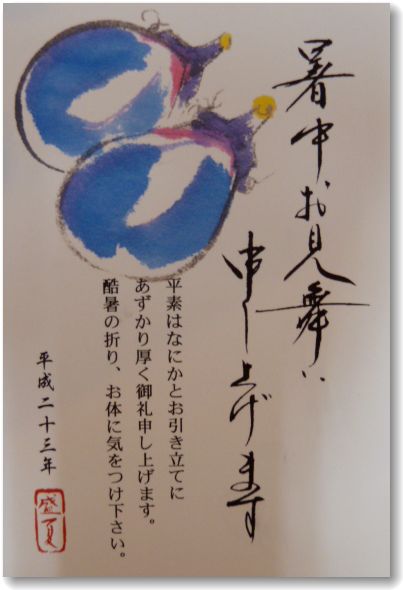 暑中お見舞い
申し上げます
平素はなにかとお引き立てに
あずかり厚く御礼申し上げます。
酷暑の折り、お体に気をつけ下さい。
平成二十三年
盛夏